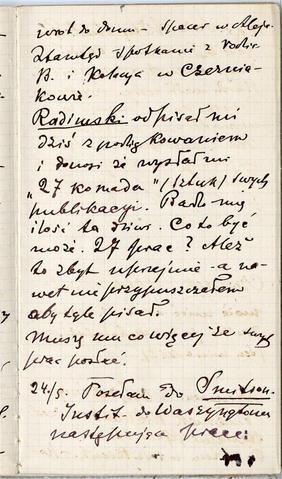 wrot do domu – spacer w Aleje
Stamtąd spotkanie z rodz.
B. i kolacja w Czernia-
kowie.
Radimski odpisał mi
dziś z podziękowaniem
i donosi że wysłał mi
"27 komada" / (sztuk) swych
publikacyj. Bardo mię
ilość ta dziwi. Co to być
może. 27 prac? Ależ
to zbyt uprzejmie - a na-
wet nie przypuszczałem
aby tyle pisał.
Muszę mu co więcej ze swych
prac posłać.
24/5. Posłałem do Smitson.
Instit. do Waszyngtonu
następujące prace: